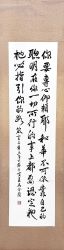 你要專心仰賴耶和華不可倚靠自己的
聰明在你一切所行的事上都要認定祂
祂必指引你的路